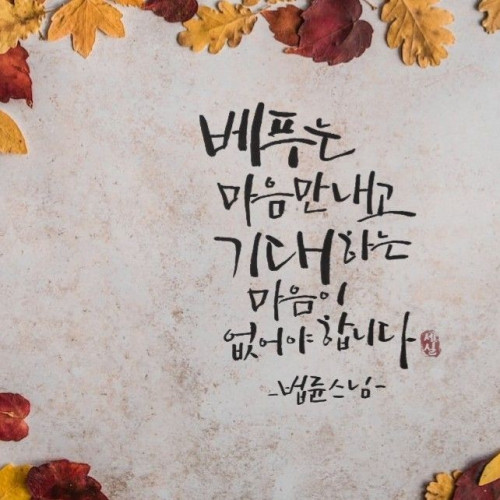 베푸는
마음만 내고
기대하는
마음이
없어야 합니다
-법륜스님-